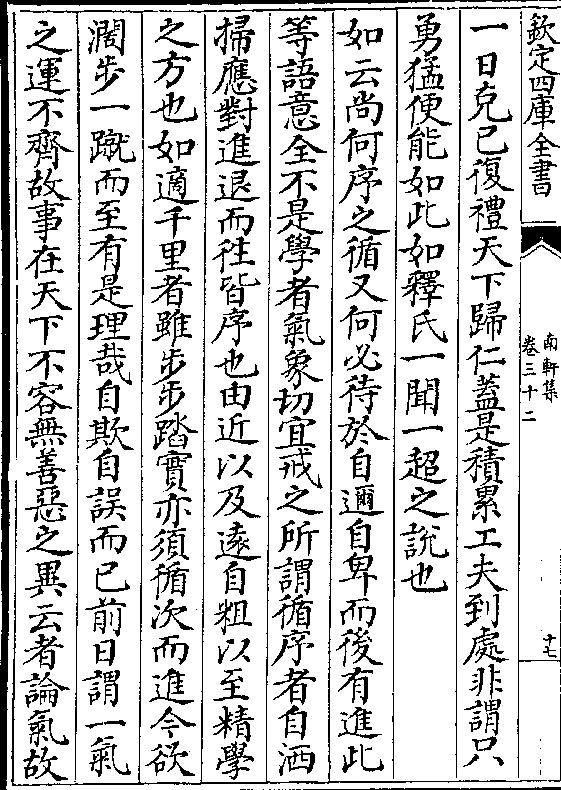 欽定四庫全書
南軒集
卷三十二
十七
一日克已復禮天下歸仁蓋是積累工夫到處非謂只
勇猛便能如此如釋氏一聞一超之說也
如云尚何序之循又何必待於自邇自卑而後有進此
等語意全不是學者氣象切宜戒之所謂循序者自洒
掃應對進退而徃皆序也由近以及逺自粗以至精學
之方也如適千里者雖步步踏實亦須循次而進今欲
濶步一蹴而至有是理哉自欺自誤而已前日謂一氣
之運不齊故事在天下不容無善惡之異云者論氣故